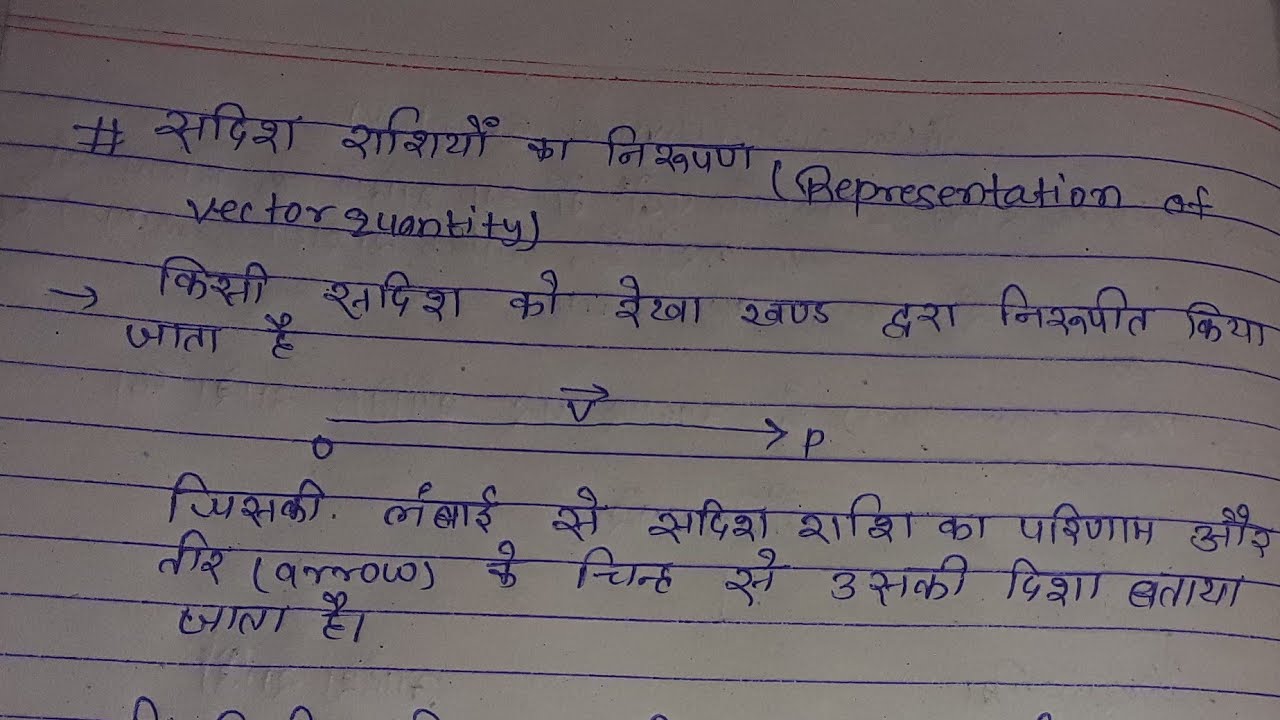 # सदिश राशियों का निरूपण (Representation of
vector quantity)
→ किसी सदिश को रेखा खण्ड द्वरा निरूपीत किया
जाता है
V→
O P
जिसकी. लंबाई से सदिश राशि का परिणाम और
तीर (arrow) के चिन्ह से उसकी दिशा बताया
जाता है।